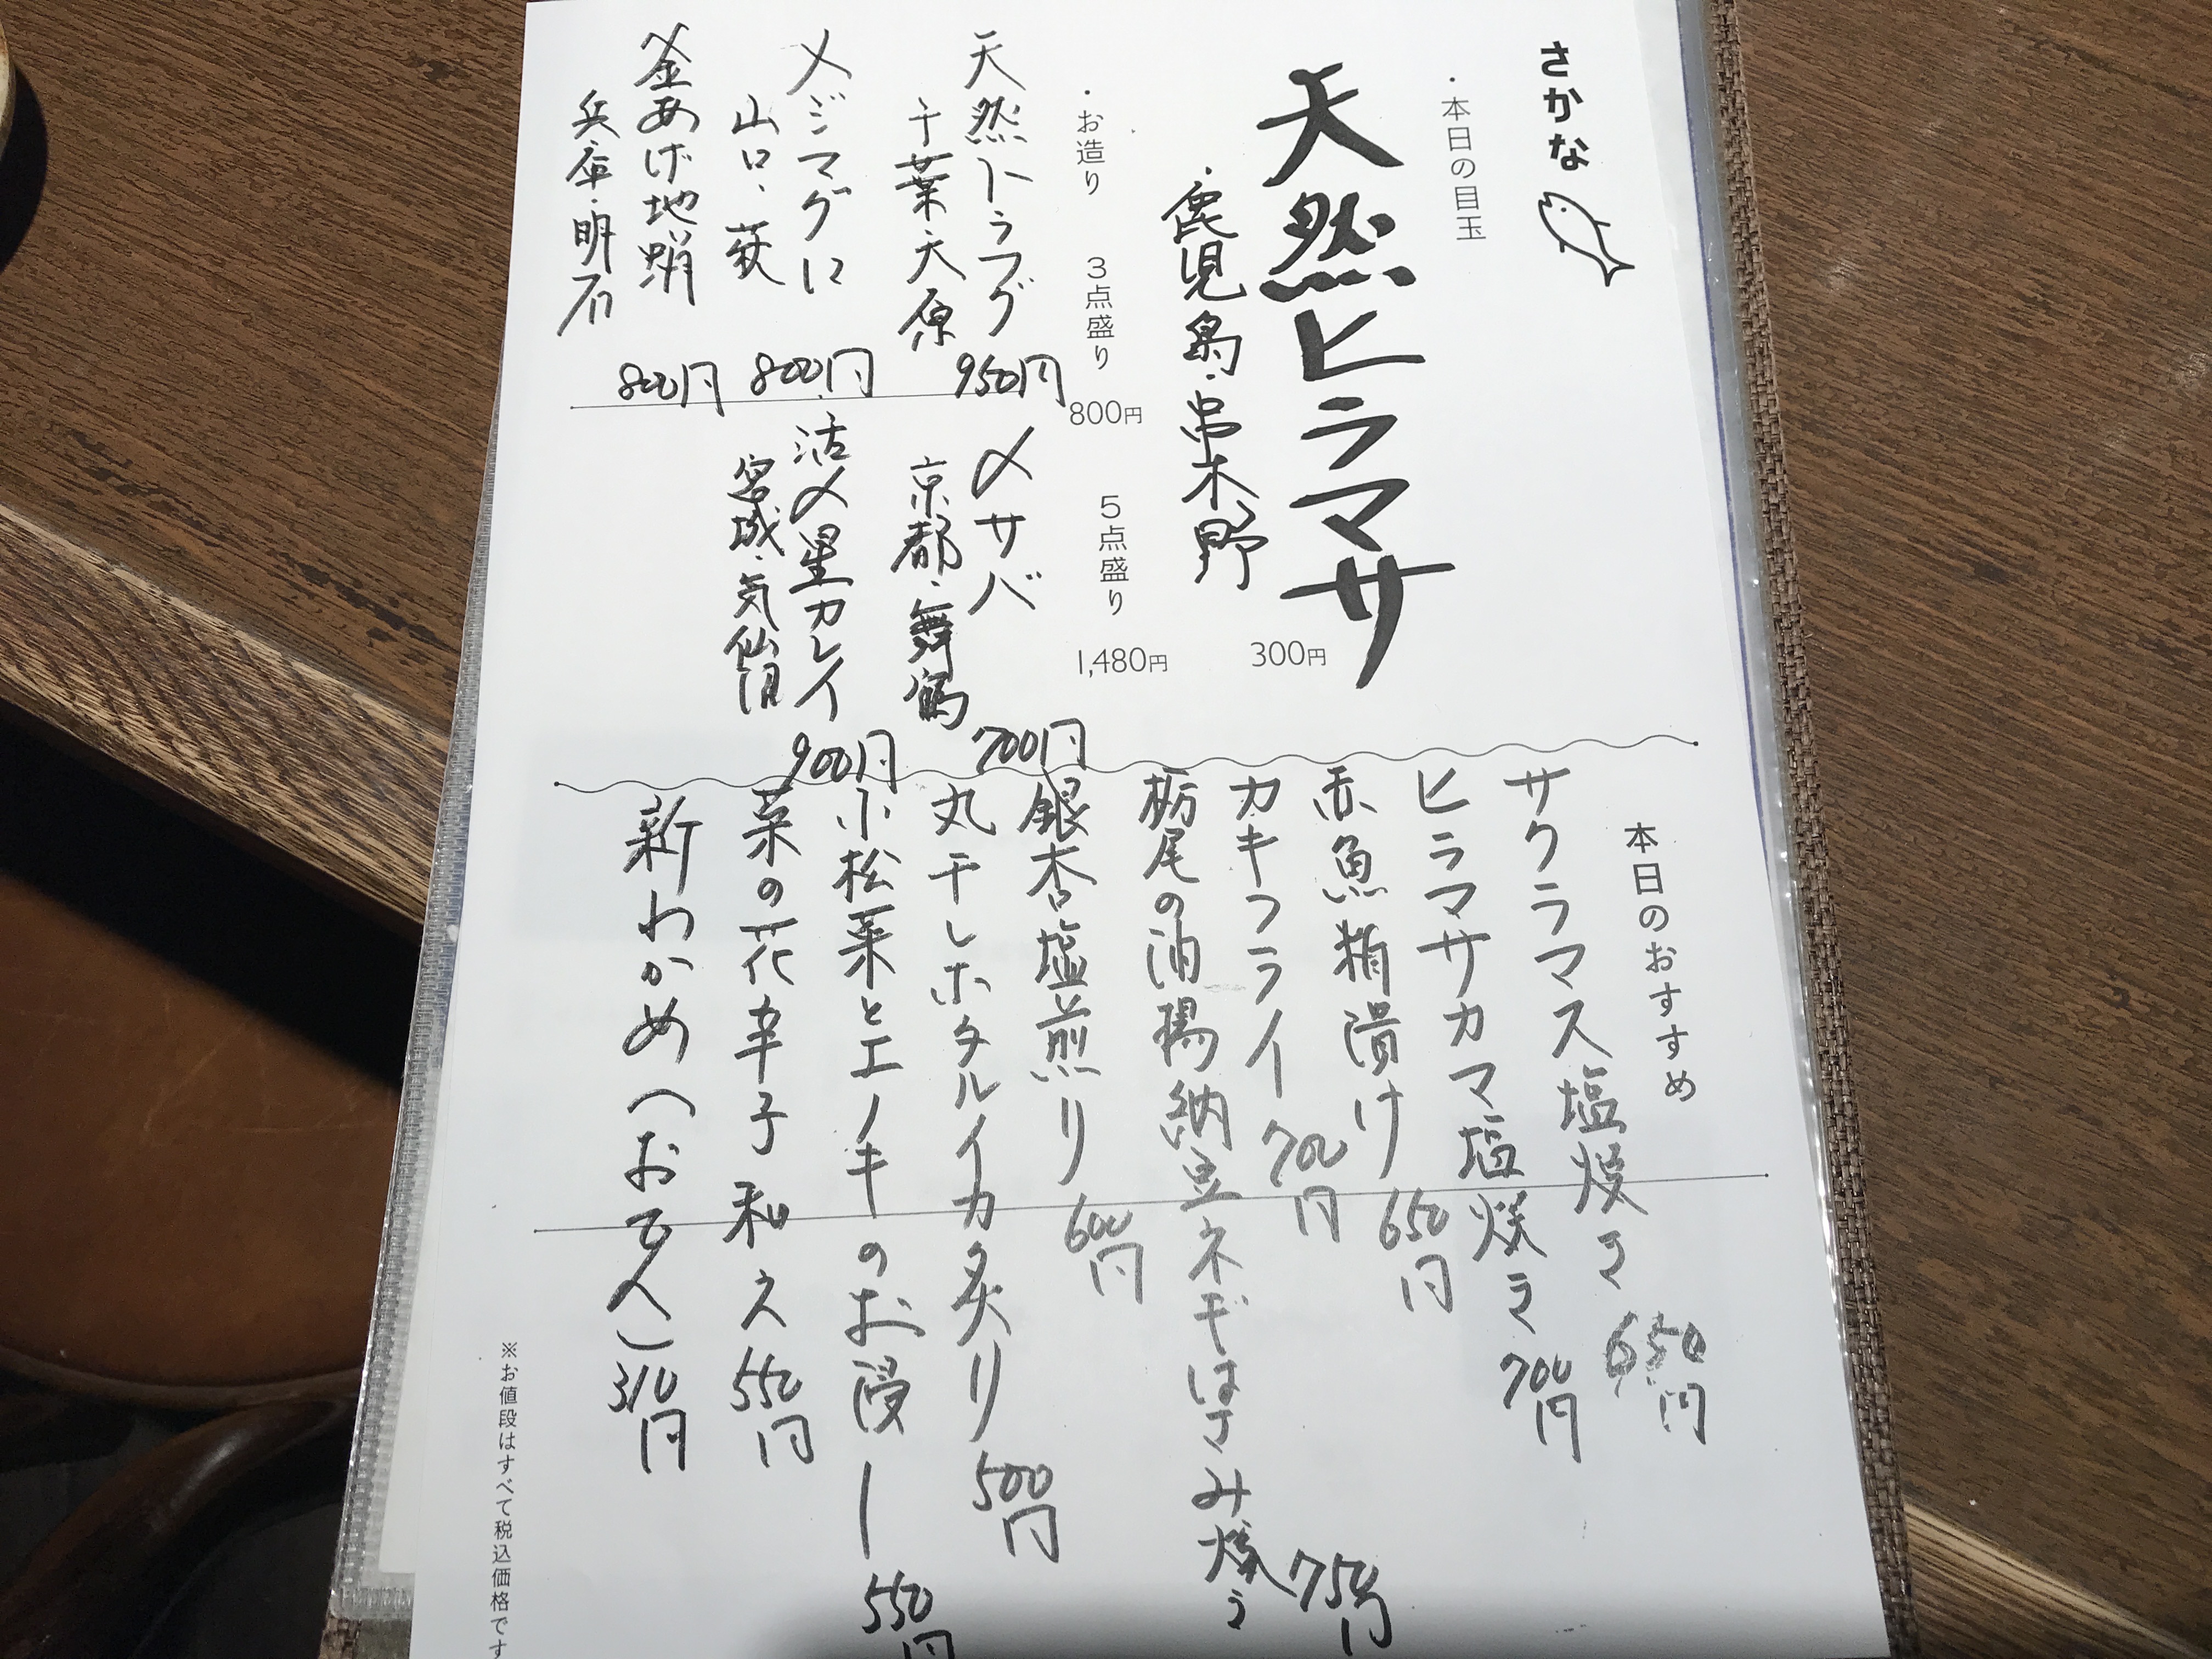 さかな
・本日の目玉
天然ヒラマサ
・鹿児島・串木野
300円
・お造り 3点盛り 800円 5点盛り 1,480円
天然トラフグ 950円
千葉・大原
メジマグロ 800円
山口・萩
釜あげ地蛸 800円
兵庫・明石
〆サバ 700円
京都・舞鶴
活〆星カレイ 900円
宮城・気仙沼
本日のおすすめ
サクラマス塩焼き 650円
ヒラマサカマ塩焼き 700円
赤魚粕漬け 650円
カキフライ 700円
栃尾の油揚納豆ネギはさみ焼き 750円
銀杏塩煎り 600円
丸干しホタルイカ炙り 500円
小松菜とエノキのお浸し 550円
菜の花辛子和え 550円
新わかめ(おでん) 310円
※お値段はすべて税込価格です